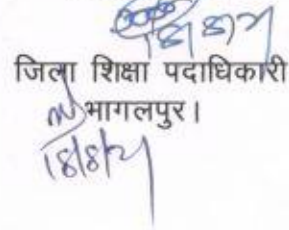 18/8/21
जिला शिक्षा पदाधिकारी
भागलपुर।
18/8/21